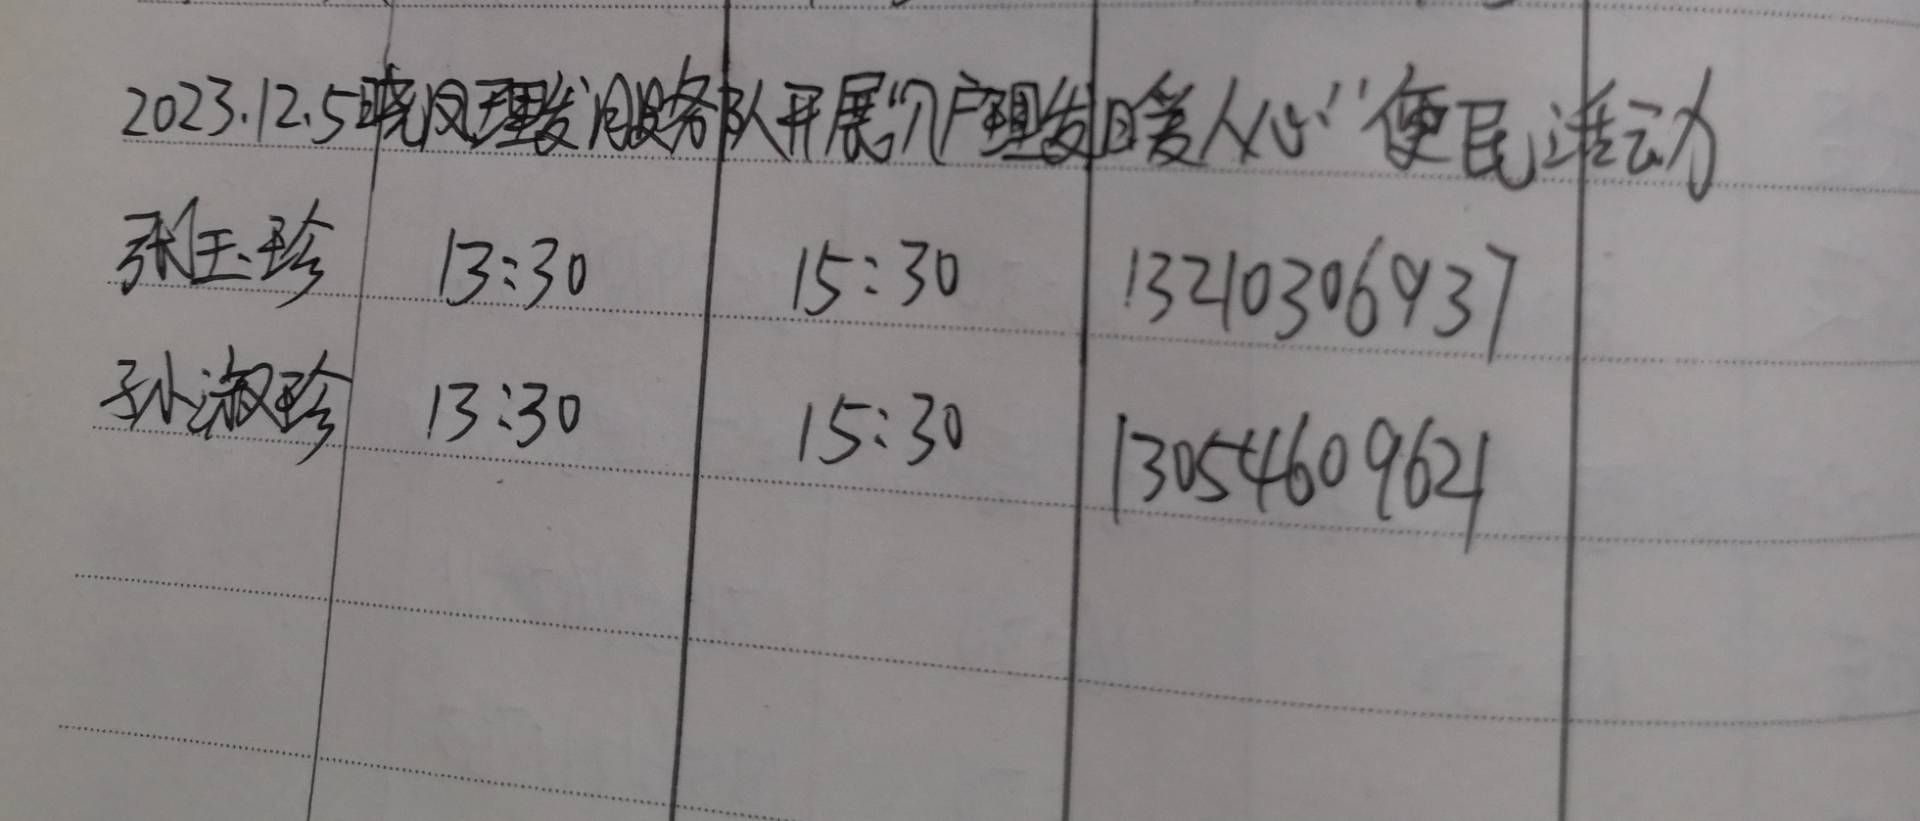 2023.12.5晓凤理发服务队开展“入户理发暖人心”便民活动
张玉珍 13:30 15:30 13210306937
孙淑珍 13:30 15:30 13054609621